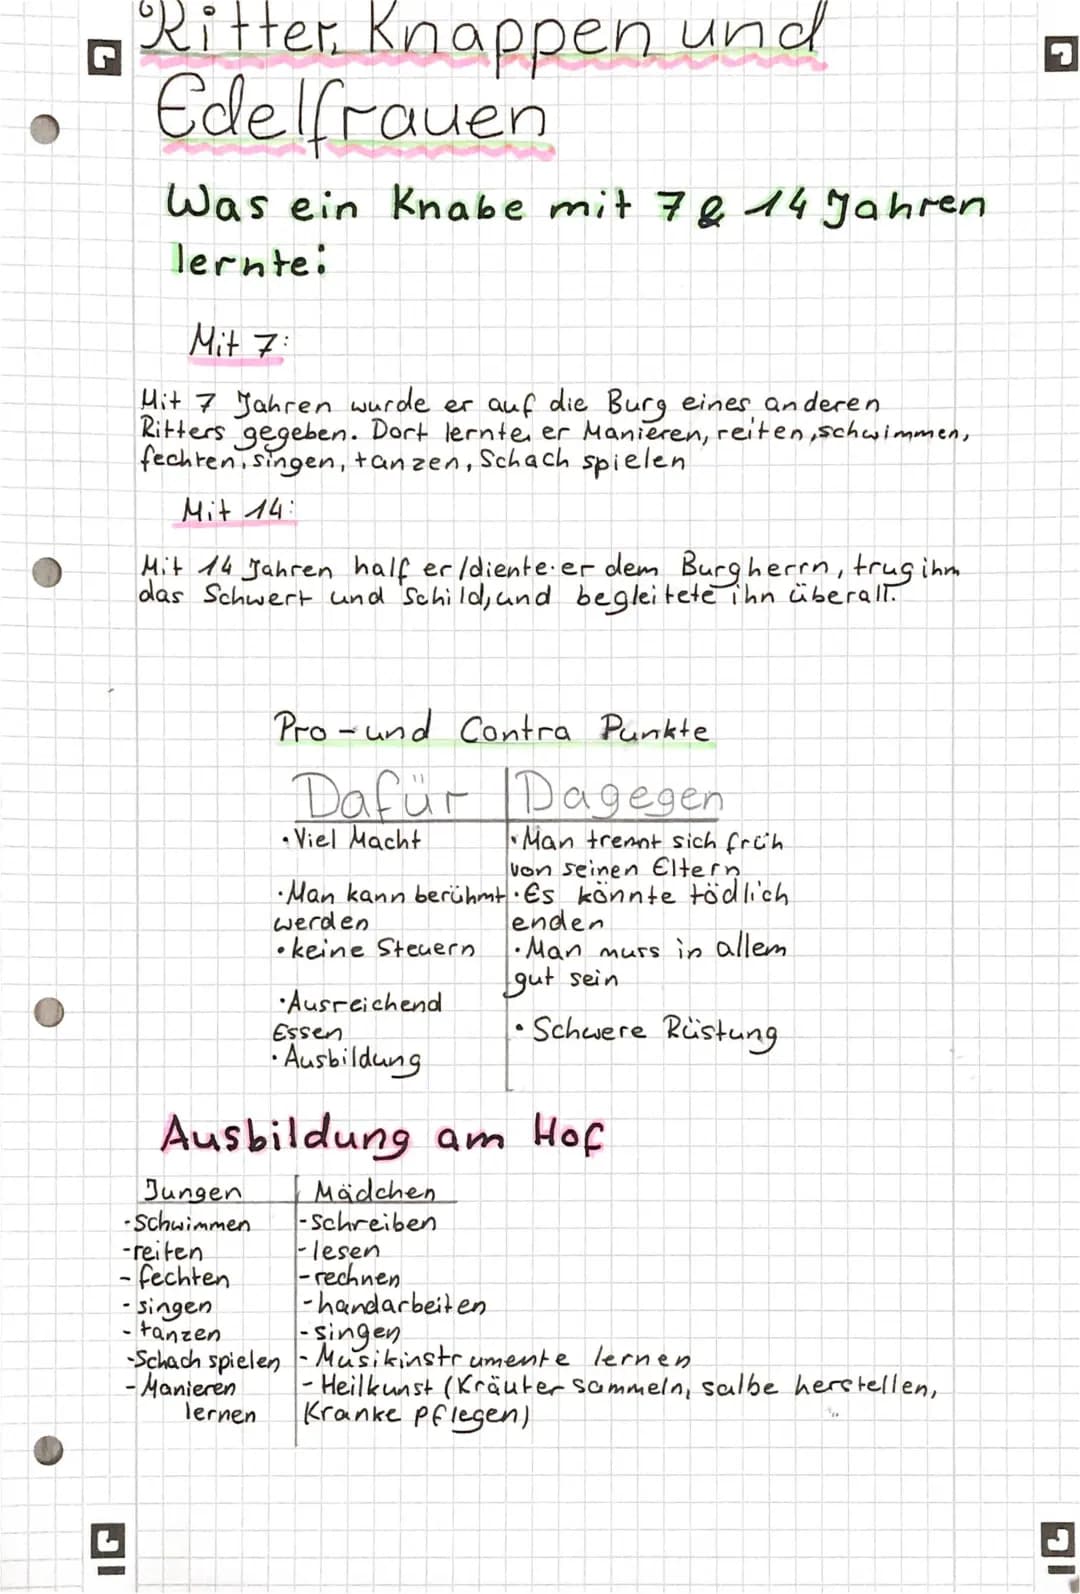 Ritter, Knappen und
Edelfrauen
Was ein Knabe mit 7 & 14 Jahren
lernte:
Mit 7:
Mit 7 Jahren wurde er auf die Burg eines anderen
Ritters gegeben. Dort lernte er Manieren, reiten, schwimmen,
fechten, singen, tanzen, Schach spielen
Mit 14:
Mit 14 Jahren half er/diente er dem Burgherrn, trug ihm
das Schwert und Schild, und begleitete ihn überall.
Pro- und Contra Punkte
Dafür
• Viel Macht
• Man kann berühmt
werden
• keine Steuern
• Ausreichend
Essen
• Ausbildung
Dagegen
• Man trennt sich früh
von seinen Eltern
• Es könnte tödlich
enden
• Man muss in allem
gut sein
• Schwere Rüstung
Ausbildung am Hof
Jungen
- Schwimmen
- reiten
- fechten
- singen
- tanzen
- Schach spielen
- Manieren
lernen
Mädchen
- schreiben
- lesen
- rechnen
- handarbeiten
- singen
- Musikinstrumente lernen
- Heilkunst (Kräuter sammeln, salbe herstellen,
Kranke pflegen)